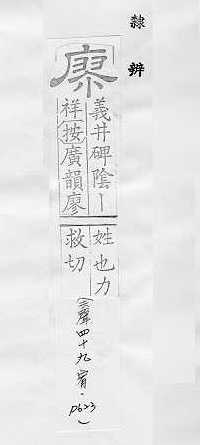 隸辨
義井碑陰丨
祥按廣韻廖
姓也力
救切
(去聲四十九宥.p623)